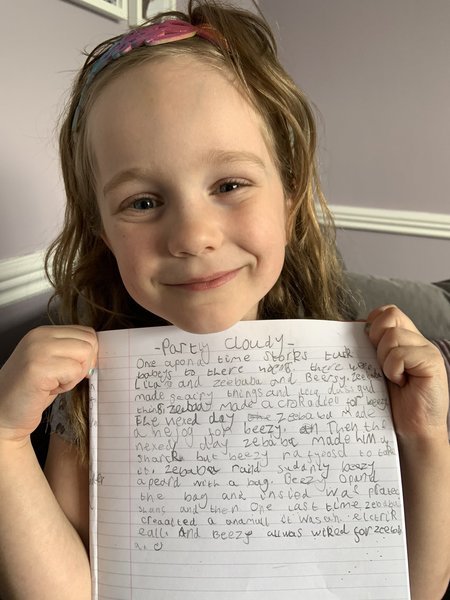 - Partly Cloudy -
One apona time storks tuck
babeys to there there were
and zeebaba and Beezy. zee
made scarry things and
things zeebaba made a crokadee for beezy
the nexd day zeebaba made
a hejog for beezy. Then the
nexed day zebaba made him a
shark but beezy rafyosd to take
it. zebaba raind suddnly beezy
apeard with a bag. Beezy opand
the bag and insied was protec
shans and then one last time zeebaba
creadted a anamull it was an electrik
eall and Beezy allwas wired for zeebab
a. ☺